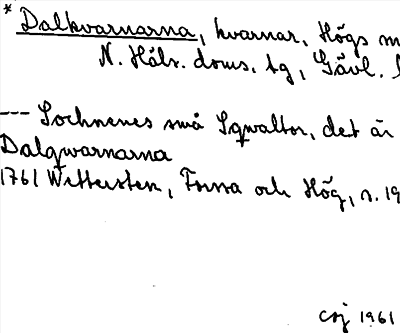 * Dalkvarnarna, kvarnar, Högs
N. Häls. doms. tg, Gävl.
--- Sochnenes små Sqwaltor, det är
Dalqwarnarna
1761 Wittersten, Forssa och Hög, s. 19
CSJ 1961